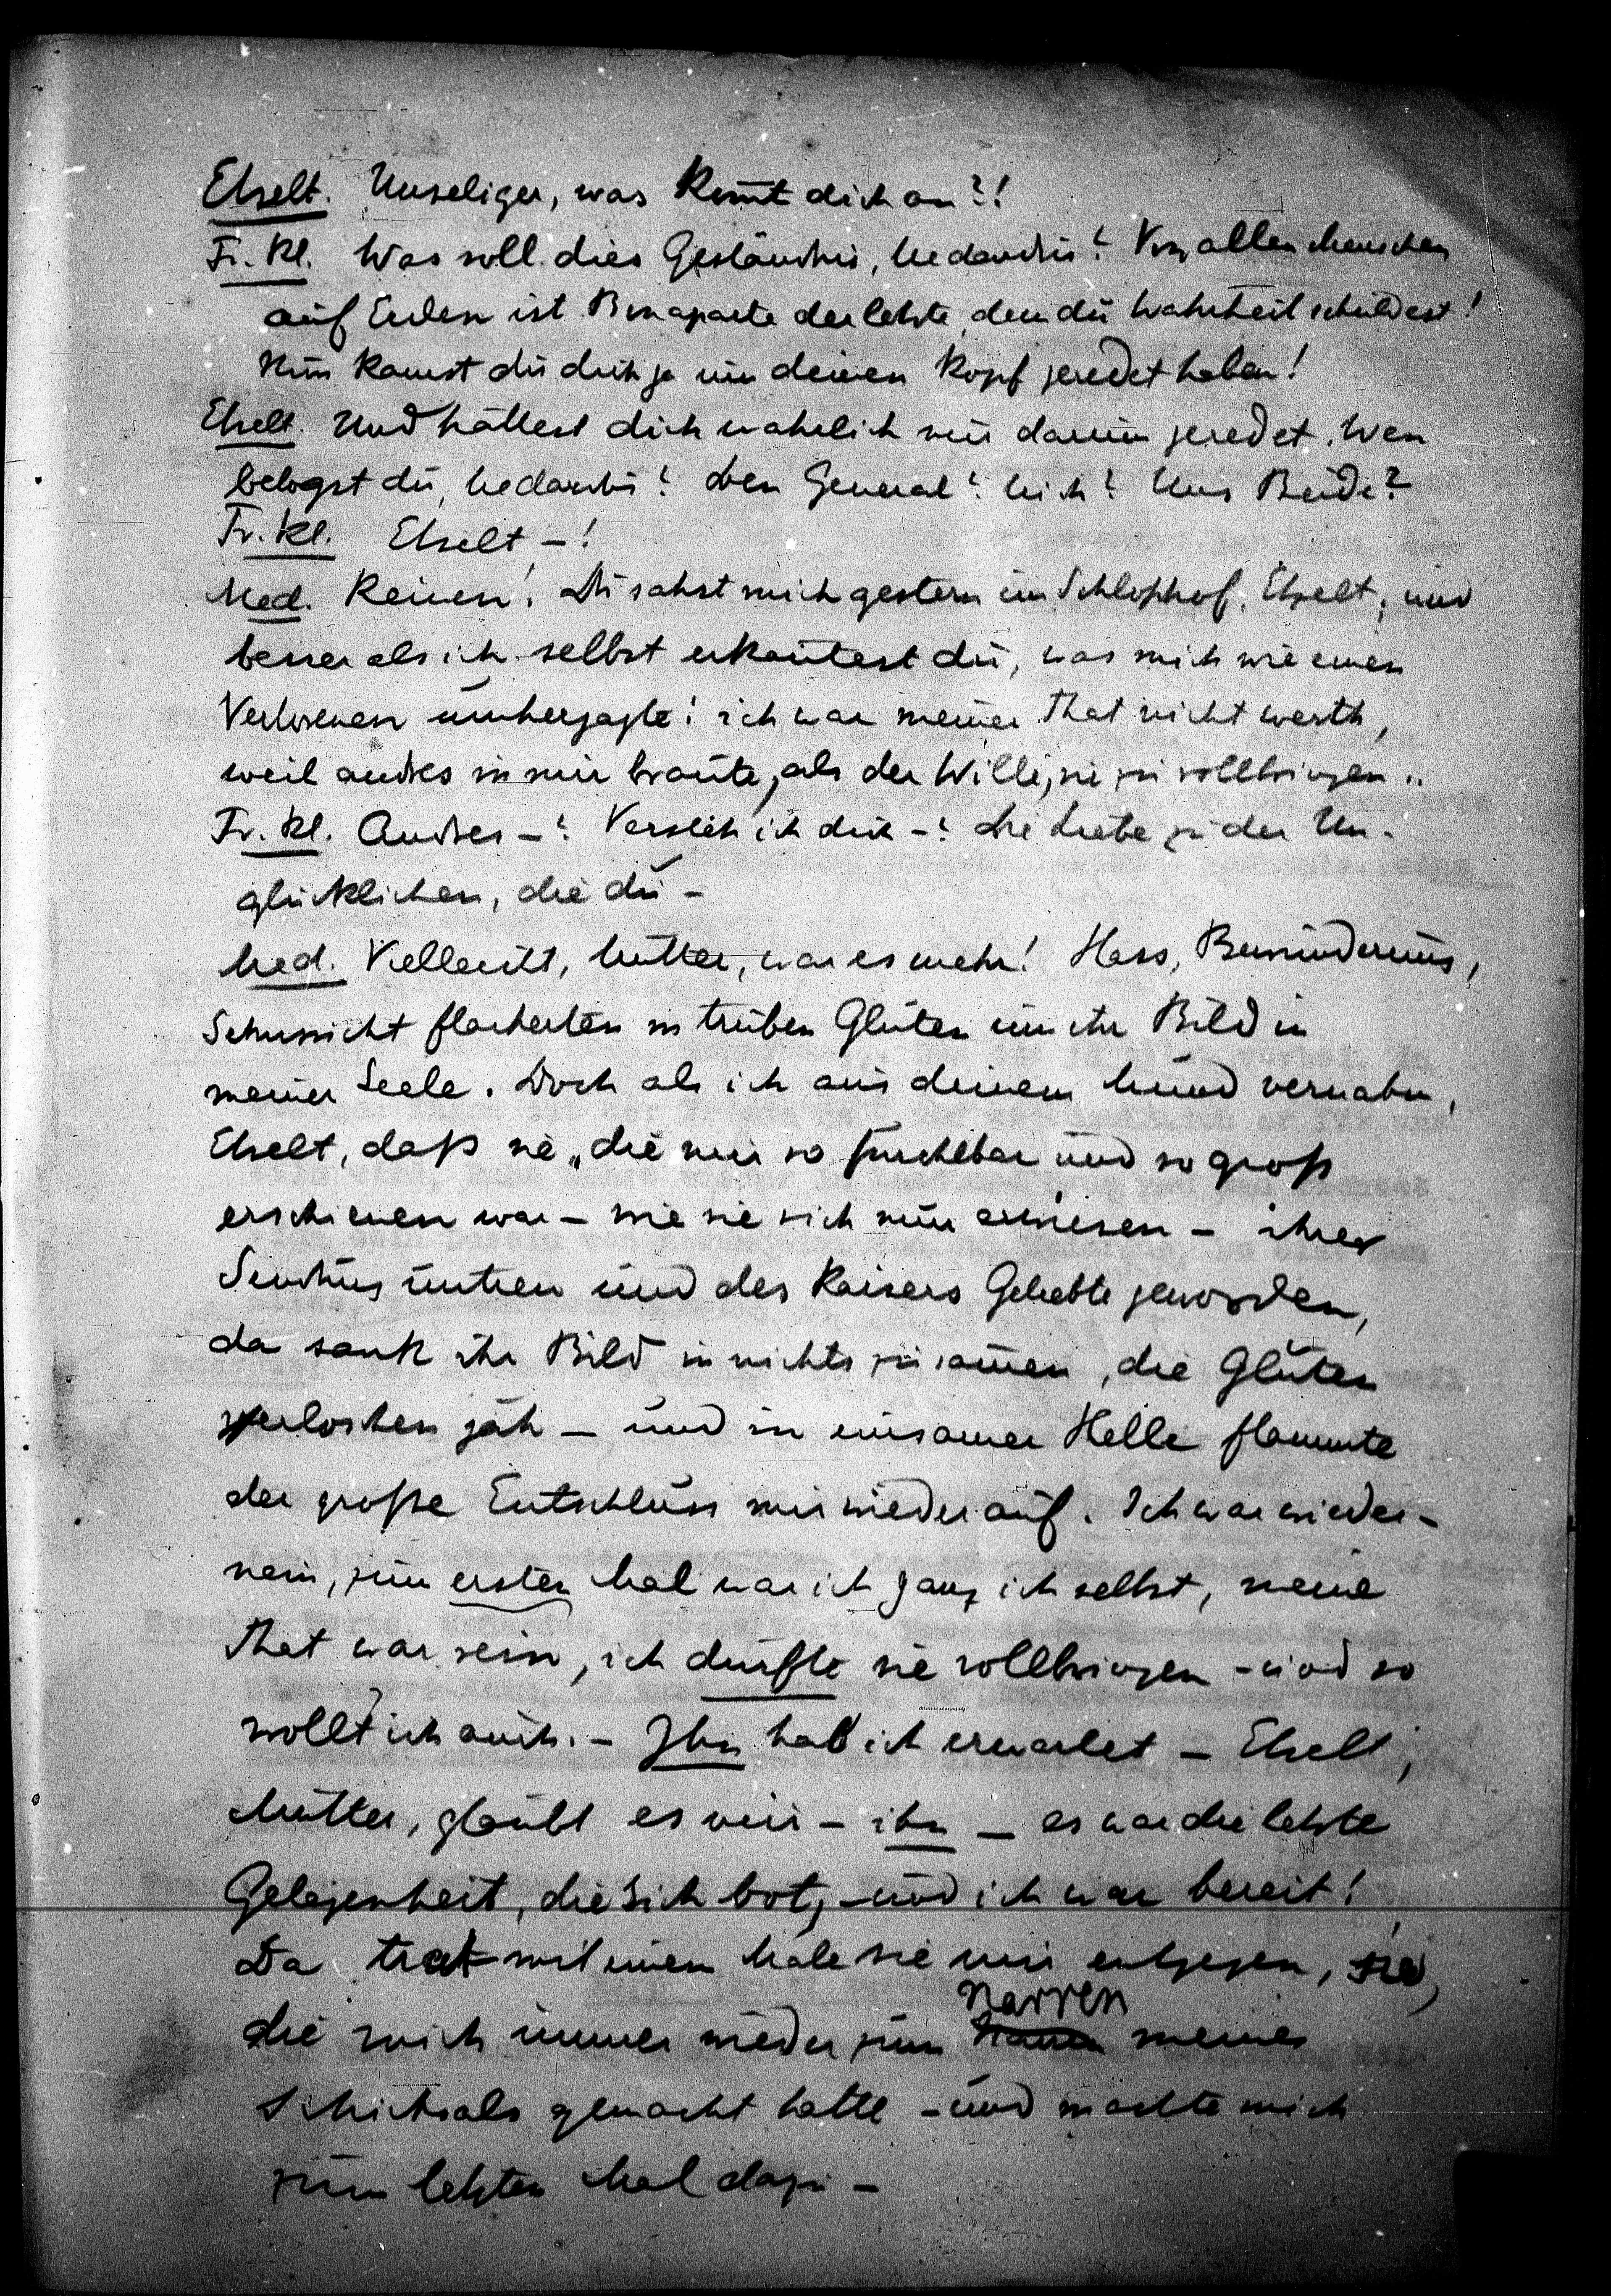 Etzelt. Unseliger, was kom̄t dich an?!
Fr. Kl. Was soll dies Geständnis, Medardus? Von allen Menschen
auf Erden ist Bonaparte der letzte, dem du Wahrheit schuldest!
Nun kannst du dich ja um deinen Kopf geredet haben!
Etzelt. Und hättest dich wahrlich nur darum geredet. Wen
belogst du, Medardus? Den General? Mich? Uns Beide?
Fr. Kl. Etzelt –!
Med. Keinen! Du sahst mich gestern im Schloßhof, Etzelt, und
besser als ich selbst erkan̄test du, was mich wie einen
Verlorenen umherjagte: ich war meiner That nicht werth,
weil andres in mir bran̄te, als der Wille, sie zu vollbringen..
Fr. Kl. Andres –? Versteh ich dich –? Die Liebe zu der Un-
glücklichen, die du –
Med. Vielleicht, Mutter, war es mehr! Hass, Bewunderung,
Sehnsucht flackerten in trüben Gluten um ihr Bild in
meiner Seele. Doch als ich aus deinem Mund vernahm,
Etzelt, daß sie, die mir so furchtbar und so groß
erschienen war – wie sie sich nun erwiesen – ihrer
Sendung untreu und des Kaisers Geliebte geworden,
da sank ihr Bild in nichts zusam̄en, die Gluten
verloschen jäh – und in einsamer Helle flammte
der große Entschluss mir wieder auf. Ich war wieder –
nein, zum ersten Mal war ich ganz ich selbst, meine
That war rein, ich durfte sie vollbringen – und so
wollt' ich auch. – Ihn hab ich erwartet – Etzelt,
Mutter, glaubt es mir – ihn – es war die letzte
Gelegenheit, die sich bot, – und ich war bereit!
Da trat mit einem Male sie mir entgegen, sie,
Narren
die mich immer wieder zum meines
Schicksals gemacht hatte – und machte mich
zum letzten Mal dazu –